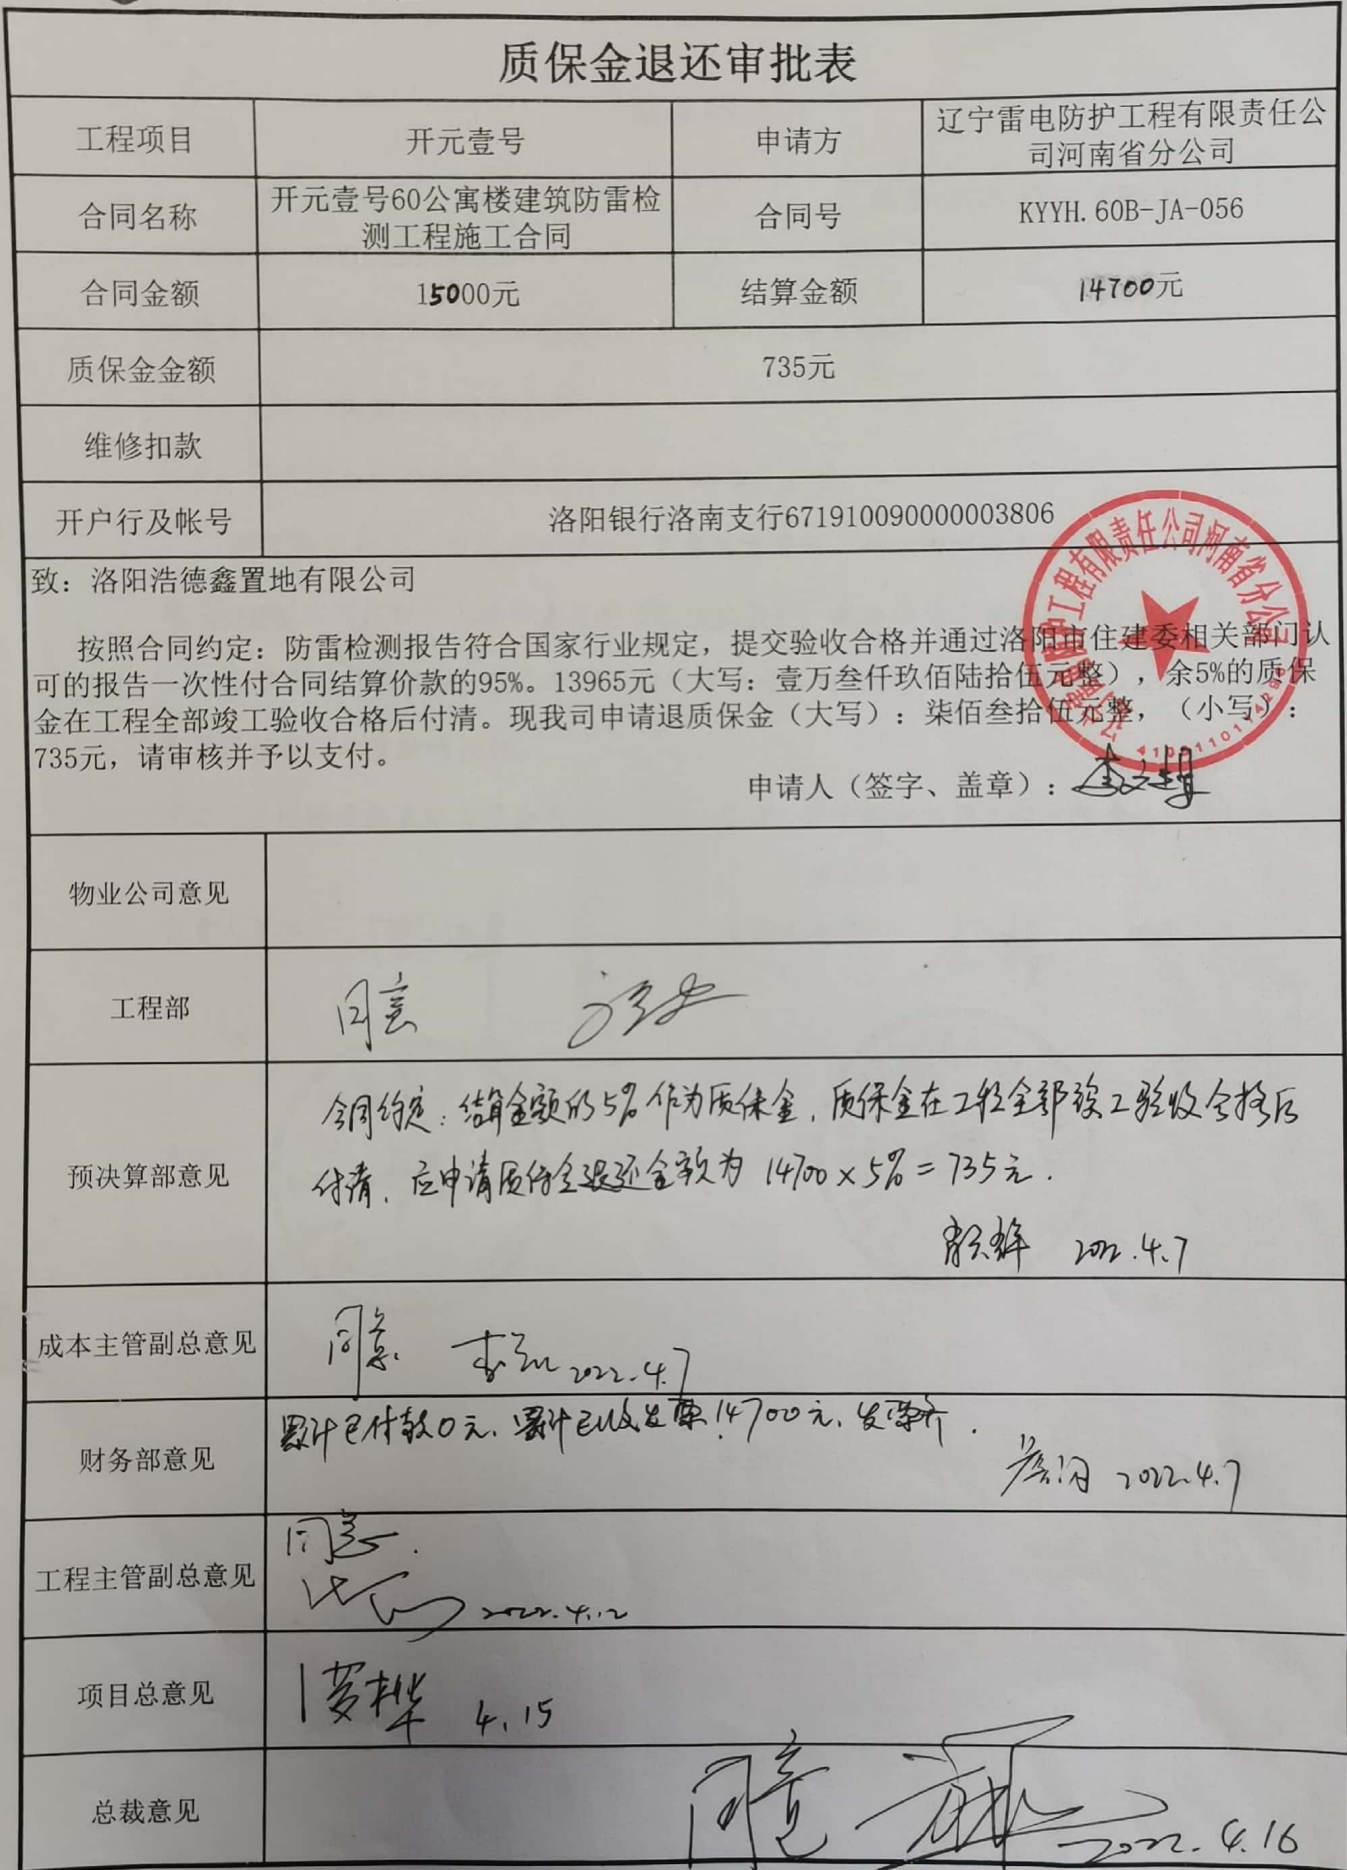 质保金退还审批表
工程项目
开元壹号
申请方
辽宁雷电防护工程有限责任公
司河南省分公司
合同名称
开元壹号60公寓楼建筑防雷检
测工程施工合同
合同号
KYYH.60B-JA-056
合同金额
15000元
结算金额
14700元
质保金金额
735元
维修扣款
开户行及帐号
洛阳银行洛南支行671910090000003806
致：洛阳浩德鑫置地有限公司
按照合同约定：防雷检测报告符合国家行业规定，提交验收合格并通过洛阳市住建委相关部门认
可的报告一次性付合同结算价款的95%。13965元（大写：壹万叁仟玖佰陆拾伍元整），余5%的质保
金在工程全部竣工验收合格后付清。现我司申请退质保金（大写）：柒佰叁拾伍元整，（小写）：
735元，请审核并予以支付。
申请人（签字、盖章）：
护工程有限责任公司河南省分公司
物业公司意见
工程部
同意
预决算部意见
合同约定：结算金额的5%作为质保金，质保金在工程全部竣工验收合格后
付清，应申请质保金退还金额为14700×5%=735元.
2022.4.7
成本主管副总意见
同意
2022.4.7
财务部意见
累计已付款0元，累计已收发票14700元，发票齐.
2022.4.7
工程主管副总意见
同意.
2022.4.12
项目总意见
4.15
总裁意见
同意
2022.4.16